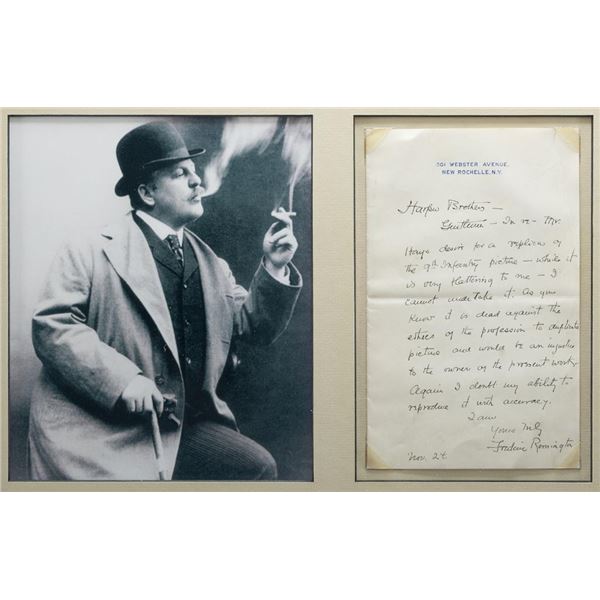 301 WEBSTER AVENUE.
NEW ROCHELLE, N.Y.
Harper Brothers —
Gentlemen — In re — Mr
desire for a replica of
the 9th Infantry picture — while it
is very flattering to me — I
cannot undertake it. As you
know it is dead against the
ethics of the profession to duplicate
picture and would be an injustice
to the owner of the present work.
Again I doubt my ability to
reproduce it with accuracy.
I am
Yours truly
Frederic Remington
Nov. 27.